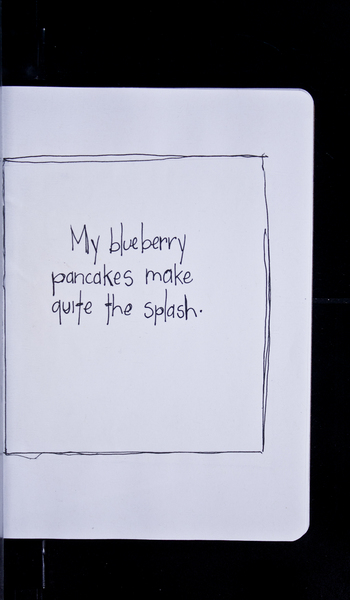 My blueberry
pancakes make
quite the splash.